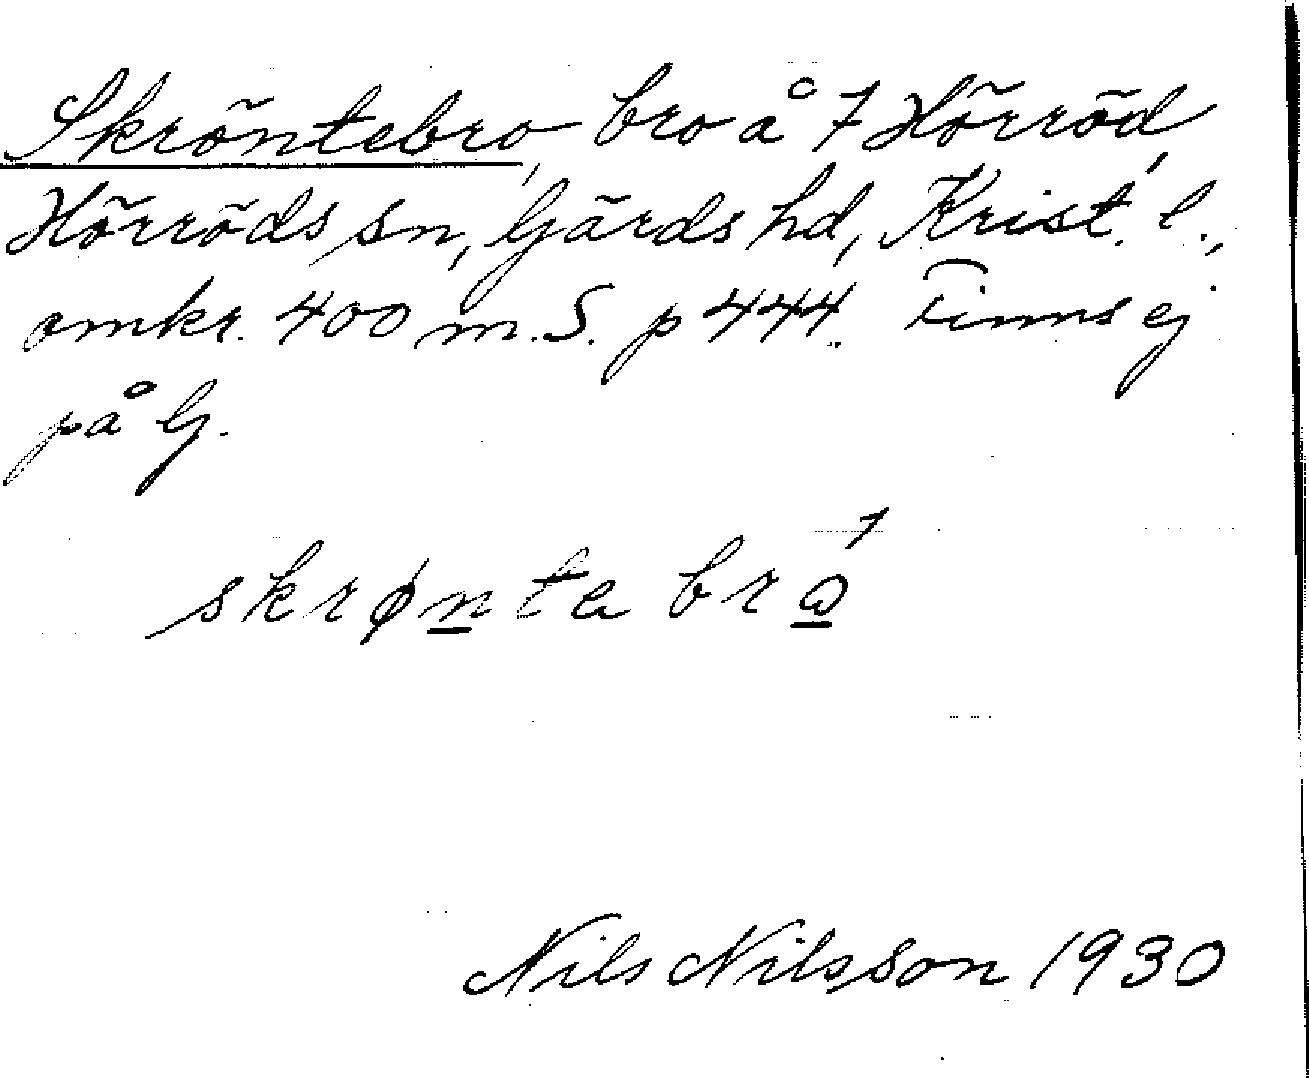 Skröntebro, bro å 7 Hörröd,
Hörröds sn, Gärds hd, Krist. l.,
omkr. 400 m. S. p 444. Finns ej
på G.
skrøntabrώ̱
Nils Nilsson 1930